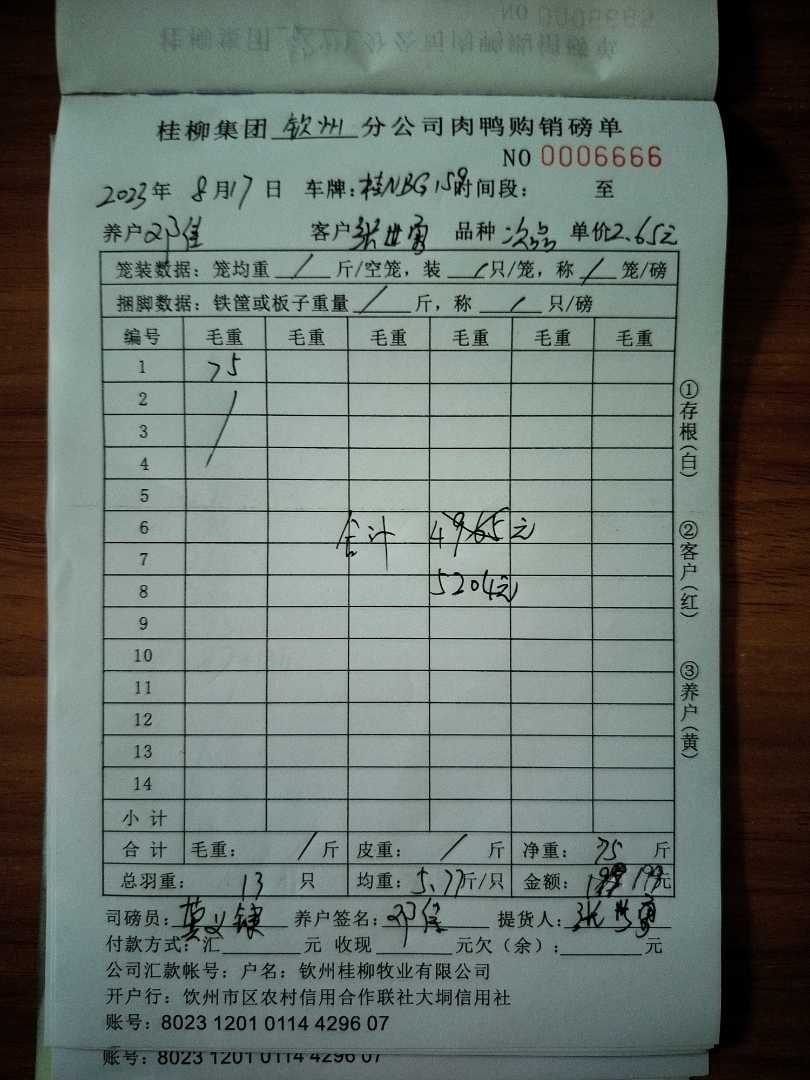 桂柳集团 钦州 分公司肉鸭购销磅单
NO 0006666
2023年 8月17日 车牌:桂NBG159 时间段: 至
养户 邓佳 客户 张世勇 品种 次品 单价2.65元
笼装数据:笼均重 / 斤/空笼,装 / 只/笼,称 / 笼/磅
捆脚数据:铁筐或板子重量 / 斤,称 / 只/磅
编号 毛重 毛重 毛重 毛重 毛重 毛重
1 75
2 /
3
4
5
6 合计 4965元
7
8 5204元
9
10
11
12
13
14
小计
合计 毛重: / 斤 皮重: / 斤 净重: 75 斤
总羽重: 13 只 均重: 5.77斤/只 金额: 199元
司磅员: 莫义 养户签名: 邓佳 提货人: 张世勇
付款方式:汇 元 收现 元欠(余): 元
公司汇款帐号:户名:钦州桂柳牧业有限公司
开户行:饮州市区农村信用合作联社大垌信用社
账号:8023 1201 0114 4296 07
账号:8023 1201 0114 4296 07
①存根(白)
②客户(红)
③养户(黄)